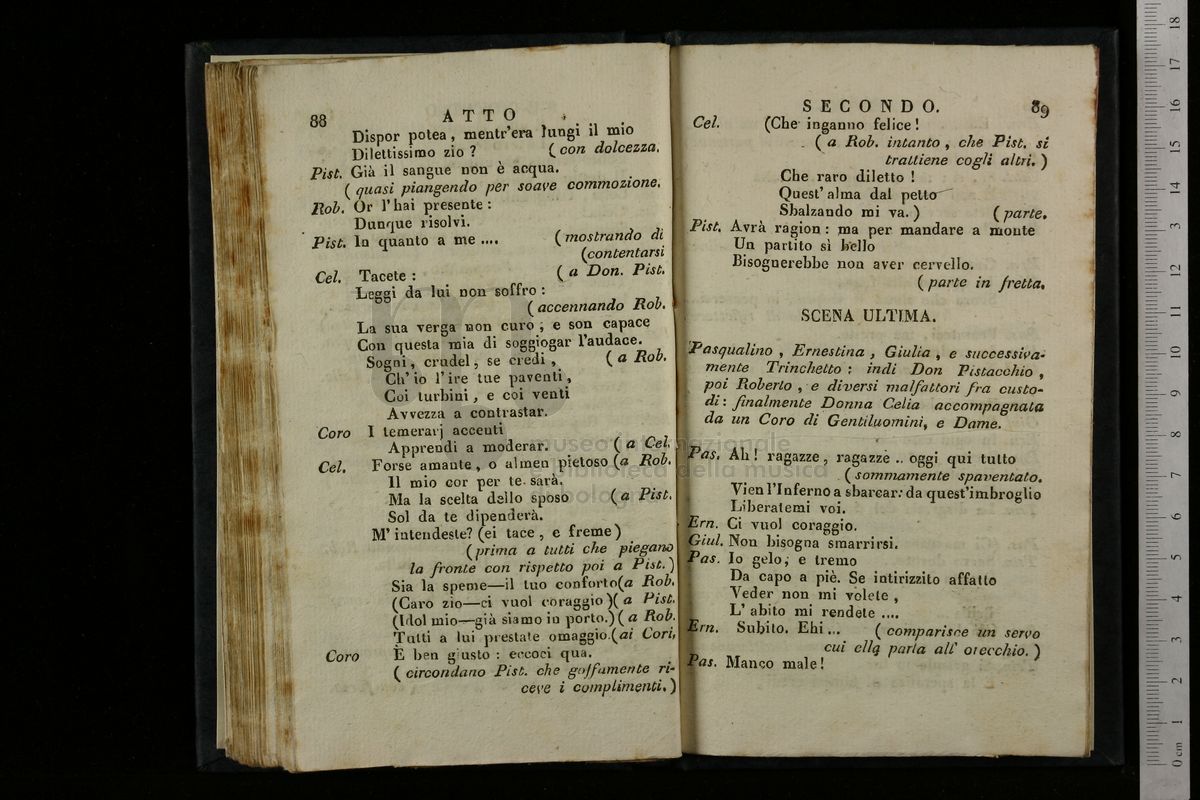 88
ATTO
Dispor potea, mentr'era lungi il mio
Dilettissimo zio ? (con dolcezza.
Pist. Già il sangue non è acqua.
(quasi piangendo per soave commozione.
Rob. Or l'hai presente :
Dunque risolvi.
Pist. In quanto a me .... (mostrando di
(contentarsi
Cel. Tacete : (a Don. Pist.
Leggi da lui non soffro :
(accennando Rob.
La sua verga non curo ; e son capace
Con questa mia di soggiogar l'audace.
Sogni, crudel, se credi, (a Rob.
Ch' io l' ire tue paventi,
Coi turbini, e coi venti
Avvezza a contrastar.
Coro I temerarj accenti
Apprendi a moderar. (a Cel.
Cel. Forse amante, o almen pietoso (a Rob.
Il mio cor per te sarà.
Ma la scelta dello sposo (a Pist.
Sol da te dipenderà.
M' intendeste? (ei tace, e freme)
(prima a tutti che piegano
la fronte con rispetto poi a Pist.)
Sia la speme—il tuo conforto(a Rob.
(Caro zio—ci vuol coraggio)(a Pist.
(Idol mio—già siamo in porto.)(a Rob.
Tutti a lui prestate omaggio.(ai Cori,
Coro È ben giusto : eccoci qua.
(circondano Pist. che goffamente ri-
ceve i complimenti.)
SECONDO. 89
Cel. (Che inganno felice !
(a Rob. intanto, che Pist. si
trattiene cogli altri.)
Che raro diletto !
Quest' alma dal petto
Sbalzando mi va.) (parte.
Pist. Avrà ragion : ma per mandare a monte
Un partito sì bello
Bisognerebbe non aver cervello.
(parte in fretta.
SCENA ULTIMA.
Pasqualino, Ernestina, Giulia, e successiva-
mente Trinchetto : indi Don Pistacchio,
poi Roberto, e diversi malfattori fra custo-
di : finalmente Donna Celia accompagnata
da un Coro di Gentiluomini, e Dame.
Pas. Ah ! ragazze, ragazze .. oggi qui tutto
(sommamente spaventato.
Vien l'Inferno a sbarcar: da quest'imbroglio
Liberatemi voi.
Ern. Ci vuol coraggio.
Giul. Non bisogna smarrirsi.
Pas. Io gelo, e tremo
Da capo a piè. Se intirizzito affatto
Veder non mi volete,
L' abito mi rendete ....
Ern. Subito. Ehi ... (comparisce un servo
cui ella parla all' orecchio.)
Pas. Manco male !
museo internazionale
e biblioteca della musica
bologna
0 cm 1 2 3 4 5 6 7 8 9 10 11 12 13 14 15 16 17 18